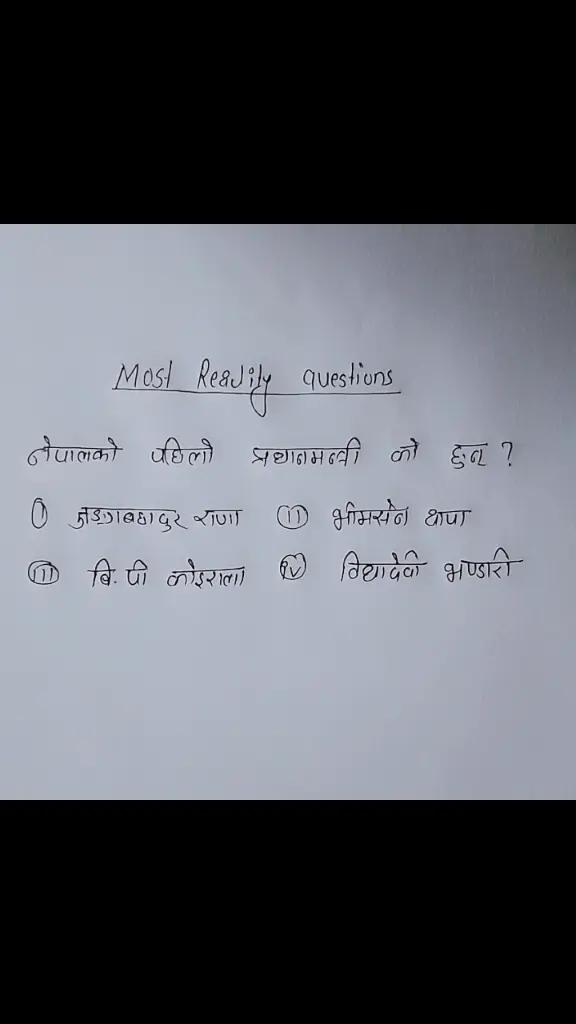 Most Readily Questions
नेपालको पहिलो प्रधानमन्त्री को हुन् ?
(i) जङ्गबहादुर राणा (ii) भीमसेन थापा
(iii) बि. पी कोइराला (iv) विद्यादेवी भण्डारी